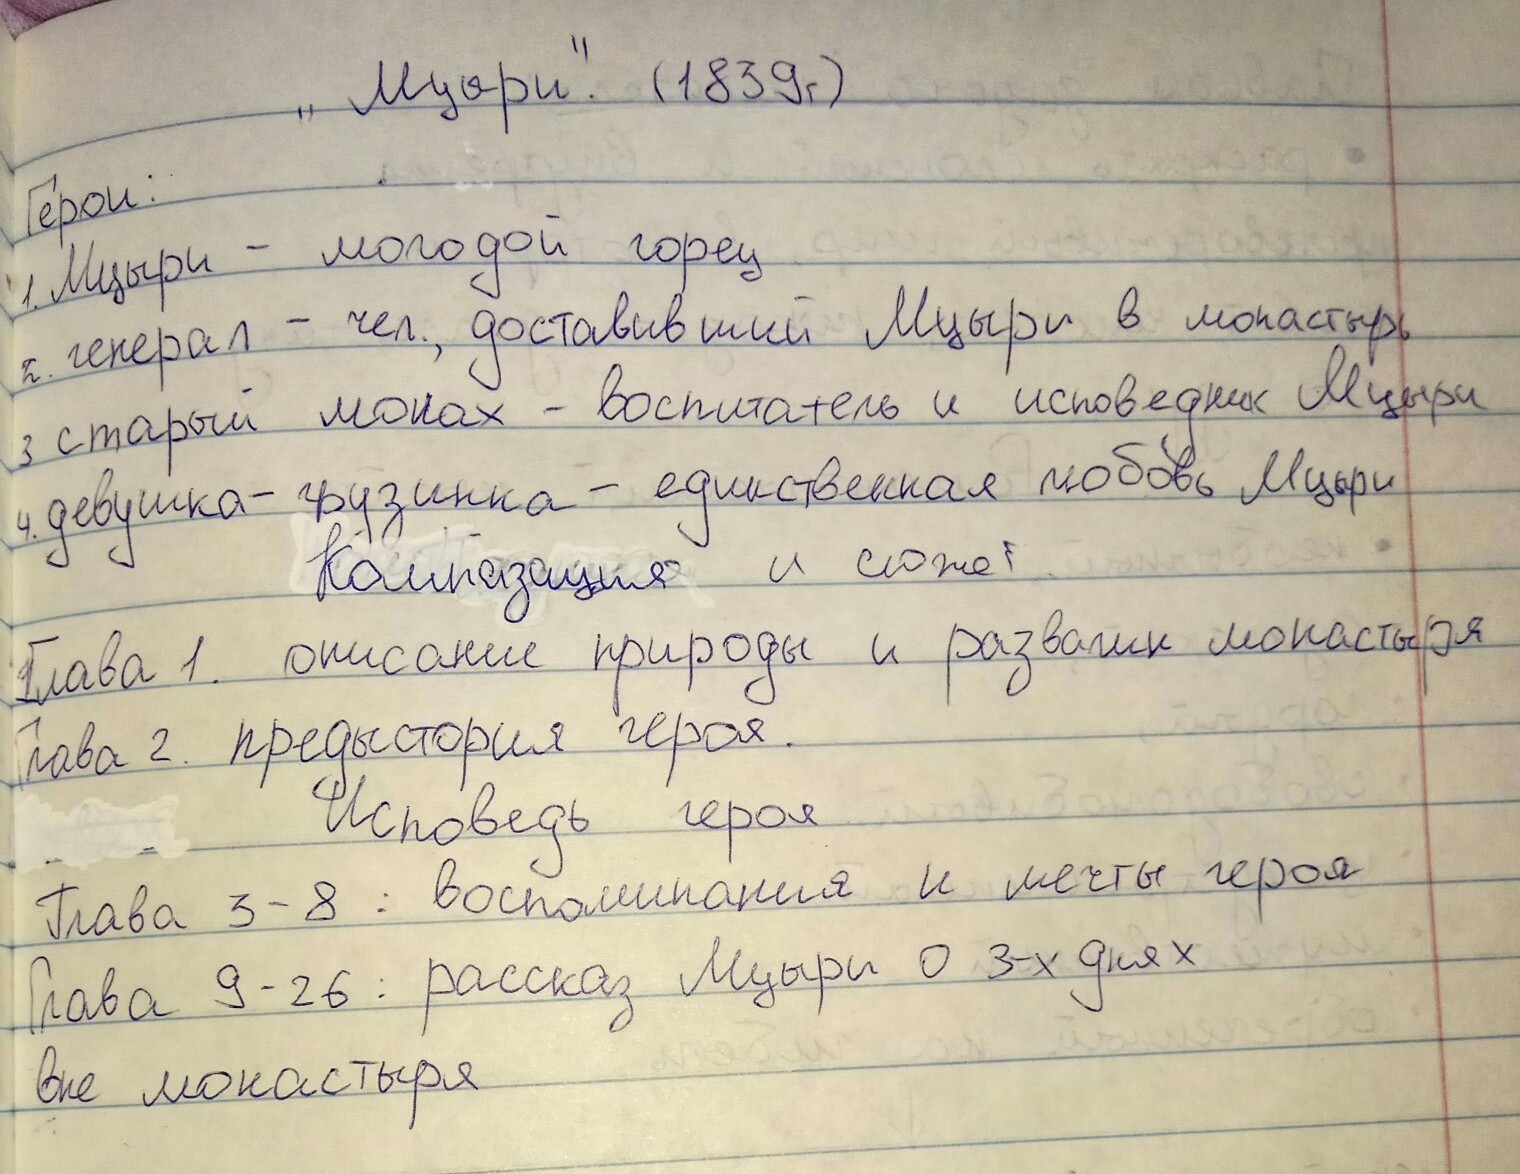 „Мцыри". (1839г)
Герои:
1. Мцыри - молодой горец
2. генерал - чел., доставивший Мцыри в монастырь
3 старый монах - воспитатель и исповедник Мцыри
4. девушка-грузинка - единственная любовь Мцыри
Компазиция и сюжет
Глава 1. описание природы и развалин монастыря
Глава 2. предыстория героя.
Исповедь героя
Глава 3-8: воспоминания и мечты героя
Глава 9-26: рассказ Мцыри о 3-х днях
вне монастыря